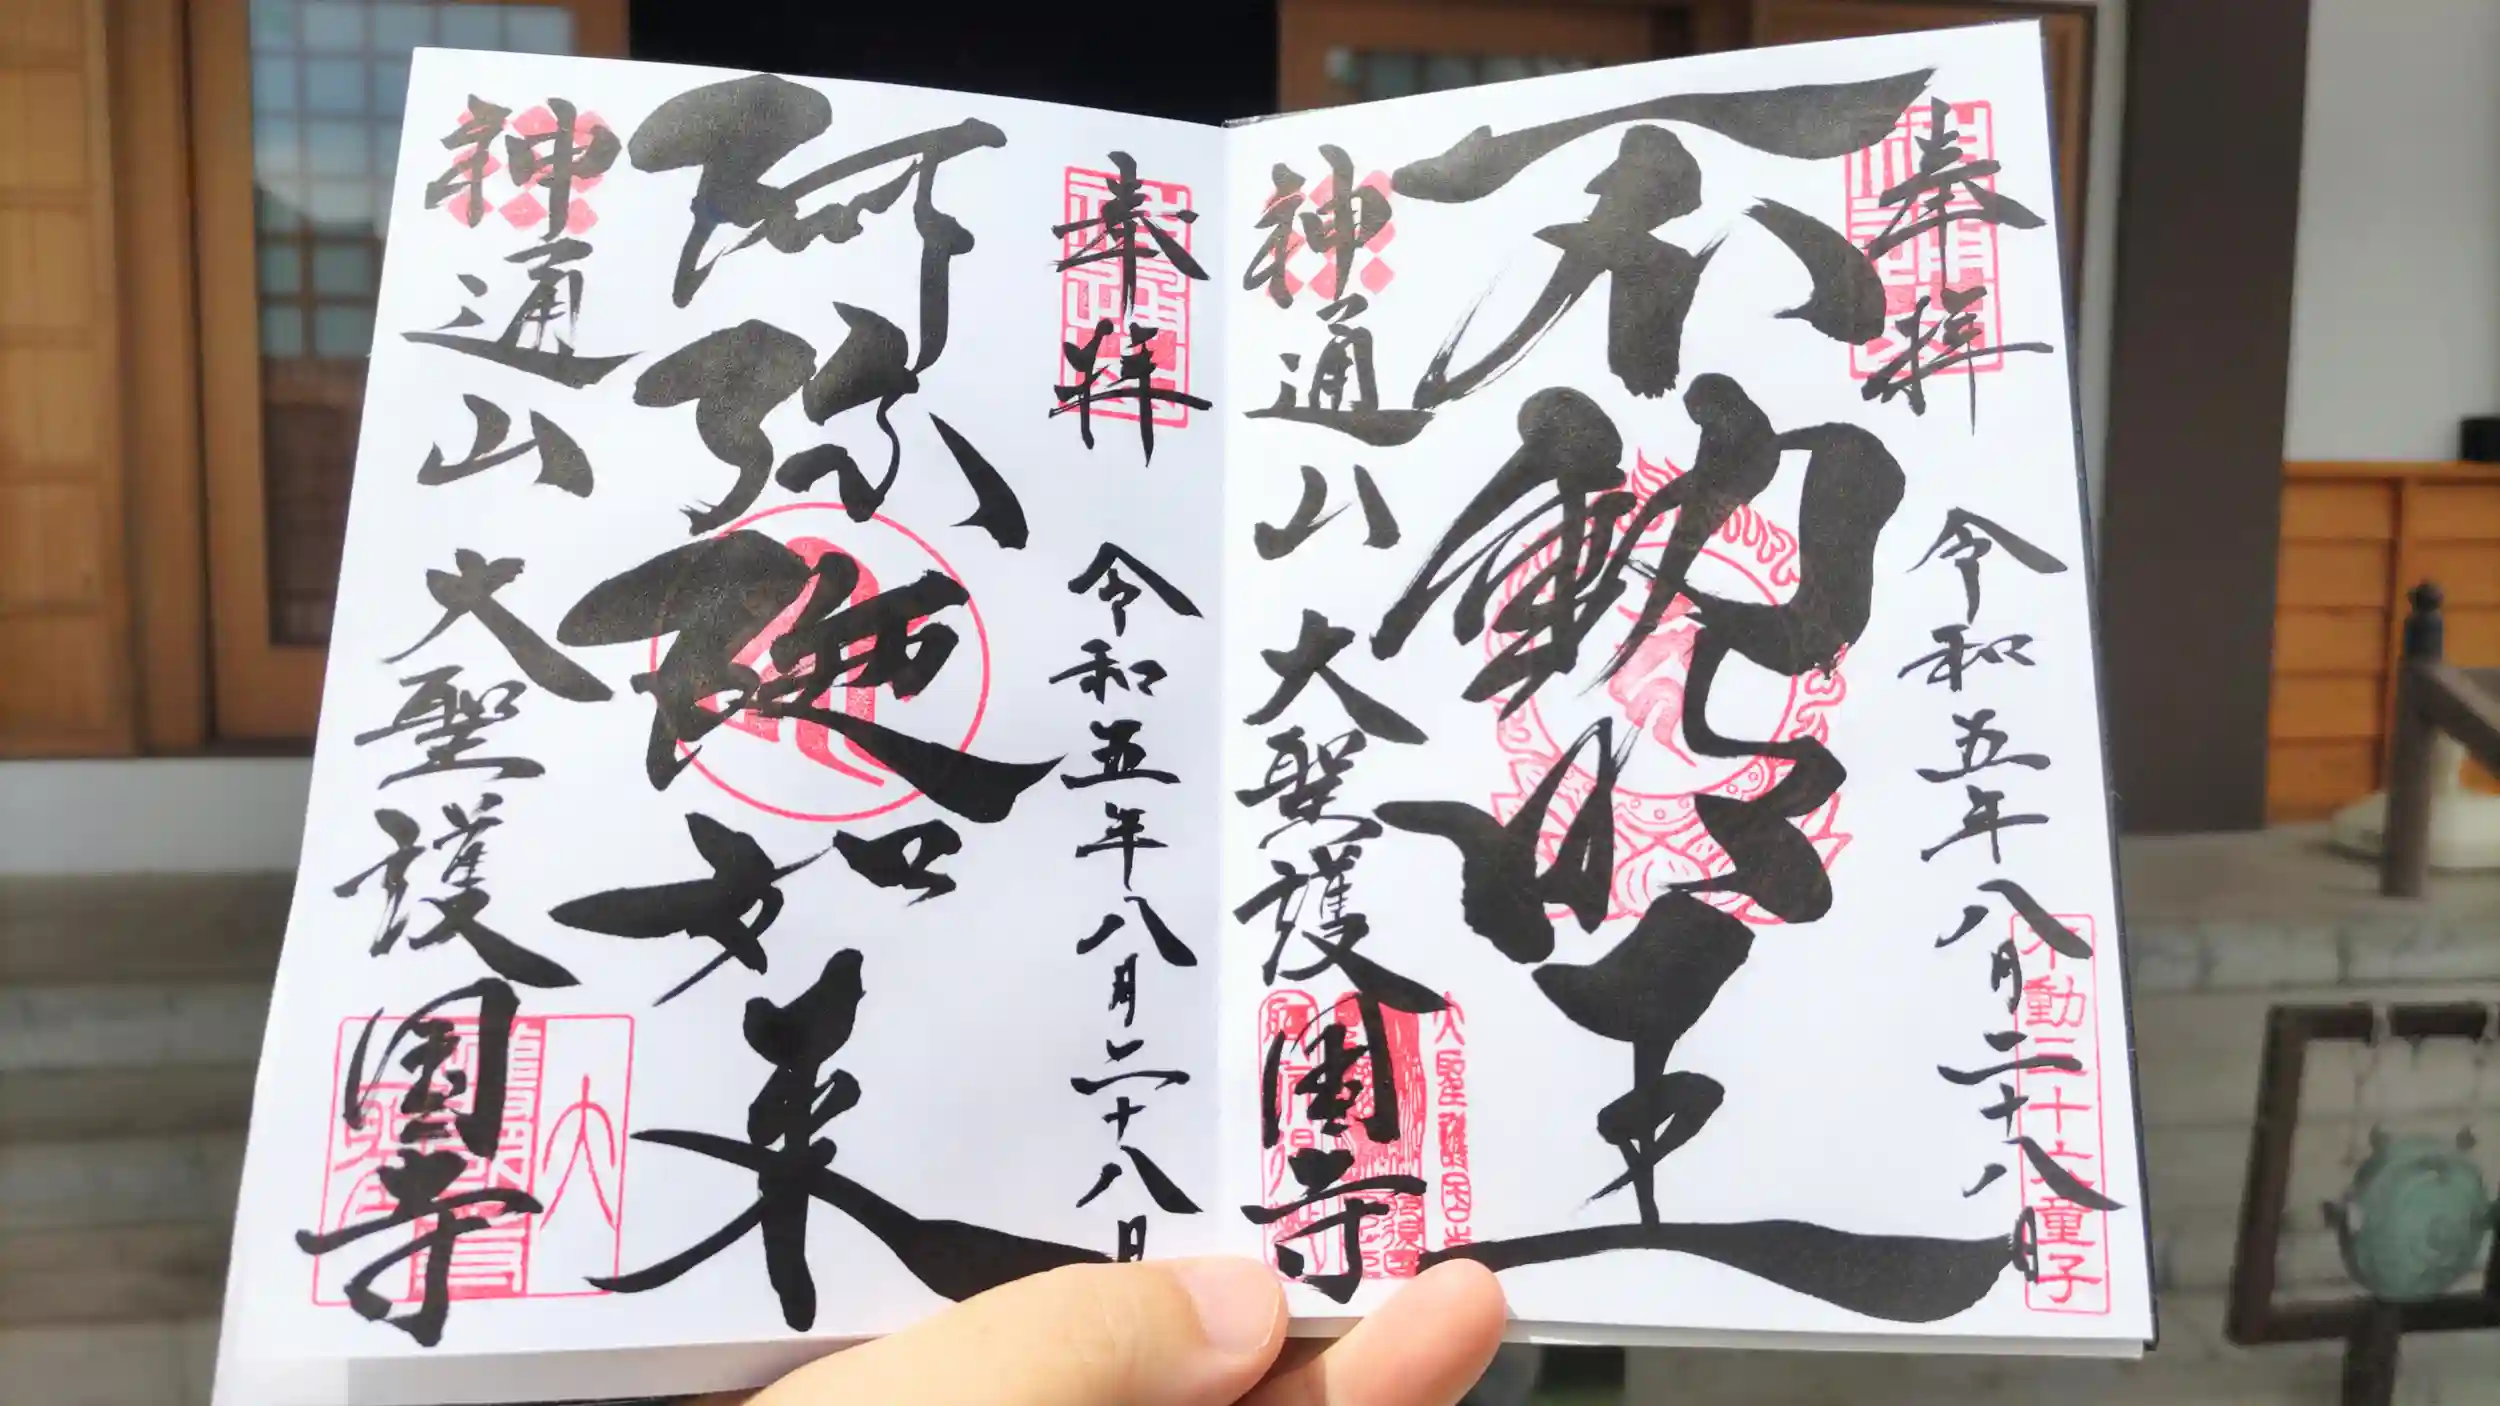 奉拝
令和五年八月二十八日
不動明王
神通山
大聖護国寺
不動三十六童子
奉拝
令和五年八月二十八日
阿弥陀如来
神通山
大聖護国寺